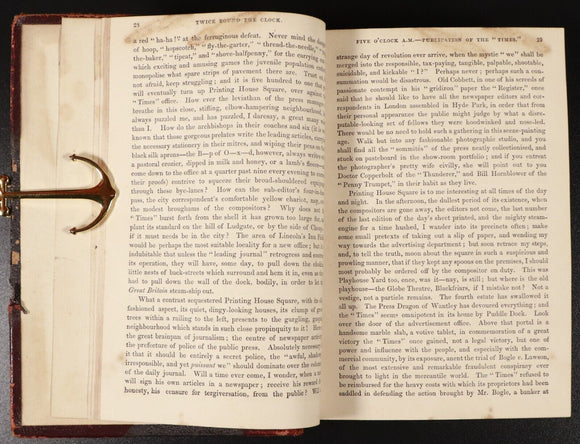 28 TWICE ROUND THE CLOCK.
a red "ha-ha!" at the ferruginous defeat. Never mind the dangers
of hoop, "hopscotch," "fly-the-garter," "thread-the-needle,"
the-baker," "tipcat," and "shove-halfpenny," for the carrying
which exciting and amusing games the juvenile population
somewhat what spare strips of pavement there are. Trust
not afraid, keep struggling; and it is five hundred to one that
will eventually turn up Printing House Square, over against
"Times" office. How ever the leviathan of the press manages
breathe in this close, stifling, elbow-hampering neighbourhood
always puzzled me, and has puzzled, I daresay, a great many
than I. How do the archbishops in their coaches and six (it is
known that those gorgeous prelates write the leading articles,
the necessary stationery in their mitres, and wiping their pens on
black silk aprons—the B—p of O—x—d, however, always writing
a pastoral crosier, dipped in milk and honey, or a lamb's fleece—
come down to the office at a quarter past nine every evening to
their proofs) contrive to squeeze their broad-shouldered equipages
through these bye-lanes? How can the sub-editor's four-in-hand
pass, the city correspondent's comfortable yellow chariot, nay,
the modest broughams of the compositors? Why does not
"Times" burst forth from the shell it has grown too large for,
plant its standard on the hill of Ludgate, or by the side of Cheap,
if it must needs be in the city? The area of Lincoln's Inn
would be perhaps the most suitable locality for a new office; but
indubitable that unless the "leading journal" retrogress and
its operation, they will have, some day, to pull down the
little nests of back-streets which surround and hem it in, even as
had to pull down the wall of the dock, bodily, in order to let
Great Britain steam-ship out.
What a contrast sequestered Printing House Square, with its
fashioned aspect, its quiet, dingy-looking houses, its clump of
trees within a railing to the left, presents to the gurgling,
neighbourhood which stands in such close propinquity to it! Here
the great brainpan of journalism; the centre of newspaper
the prefecture of police of the public press. Absolutely
it that it should be entirely a secret police, the "awful,
irresponsible, and yet puissant we" should dominate over the columns
of the daily journal. Will a time ever come, I wonder, when a
will sign his own articles in a newspaper; receive his reward
honesty, his censure for tergiversation, from the public? Will
FIVE O'CLOCK A.M.—PUBLICATION OF THE "TIMES." 29
strange day of revolution ever arrive, when the mystic "we" shall be
merged into the responsible, tax-paying, tangible, palpable, shootable,
suicidable, and kickable "I?" Perhaps never; perhaps such a con-
summation would be disastrous. Old Cobbett, in one of his screeds of
passionate contempt in his "gridiron" paper the "Register," once
said that he should like to have all the newspaper editors and cor-
respondents in London assembled in Hyde Park, in order that from
their personal appearance the public might judge by what a disre-
putable-looking set of fellows they were hoodwinked and nose-led.
There would be no need to hold such a gathering in this scene-painting
age. Walk but into any fashionable photographic studio, and you
shall find all the "sommités" of the press neatly collectionised, and
stuck on pasteboard in the show-room portfolio; and if you entreat
the photographer's pretty wife civilly, she will point out to you
Doctor Copperbolt of the "Thunderer," and Bill Hornblower of the
"Penny Trumpet," in their habit as they live.
Printing House Square is to me interesting at all times of the day
and night. In the afternoon, the dullest period of its existence, when
the compositors are gone away, the editors not come, the last number
of the last edition of the day's sheet printed, and the mighty steam-
engine for a time hushed, I wander into its precincts often; make
some small pretexts of taking out a slip of paper, and wending my
way towards the advertisement department; but soon retrace my steps,
and, to tell the truth, moon about the square in such a suspicious and
prowling manner, that if they kept any spoons on the premises, I should
most probably be ordered off by the compositor on duty. This was
Playhouse Yard too, once, was it—nay, is still; but where is the old
playhouse—the Globe Theatre, Blackfriars, if I mistake not? Not a
vestige, not a particle remains. The fourth estate has swallowed it
all up. The Press Dragon of Wantley has devoured everything; and
the "Times" seems omnipotent in its home by Puddle Dock. Look
over the door of the advertisement office. Above that portal is a
handsome marble slab, a votive tablet, in commemoration of a great
victory the "Times" once gained, not a legal victory, but one of
power and influence with the people, and especially with the com-
mercial community, by its exposure, anent the trial of Bogle v. Lawson,
of the most extensive and remarkable fraudulent conspiracy ever
brought to light in the mercantile world. The "Times" refused to
be reimbursed for the heavy costs with which its proprietors had been
saddled in defending the action brought by Mr. Bogle, a banker at